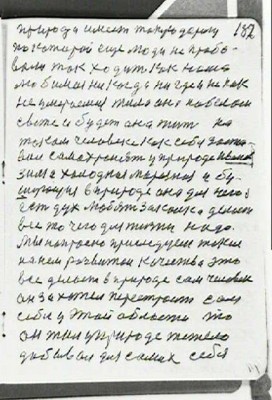 132
природа имеет такую дорогу
по которой еще люди не пробо-
вали так ходить как наша
любимая никогда нигде никак
не умираемая жила она на белом
свете и будет она жить на
таком человеке как себя заста-
вил самохранять у природе
зима холодная морозная и бу-
в природе она для него
есть дух любят закалка делать
все по чего для жизни надо
Мы напрасно преследуем такие
на нем развитые качества это
все делает в природе сам человек
он захотел перестроить сам
себя у этой области то
он жил у природе тяжело
добывал для самих себя